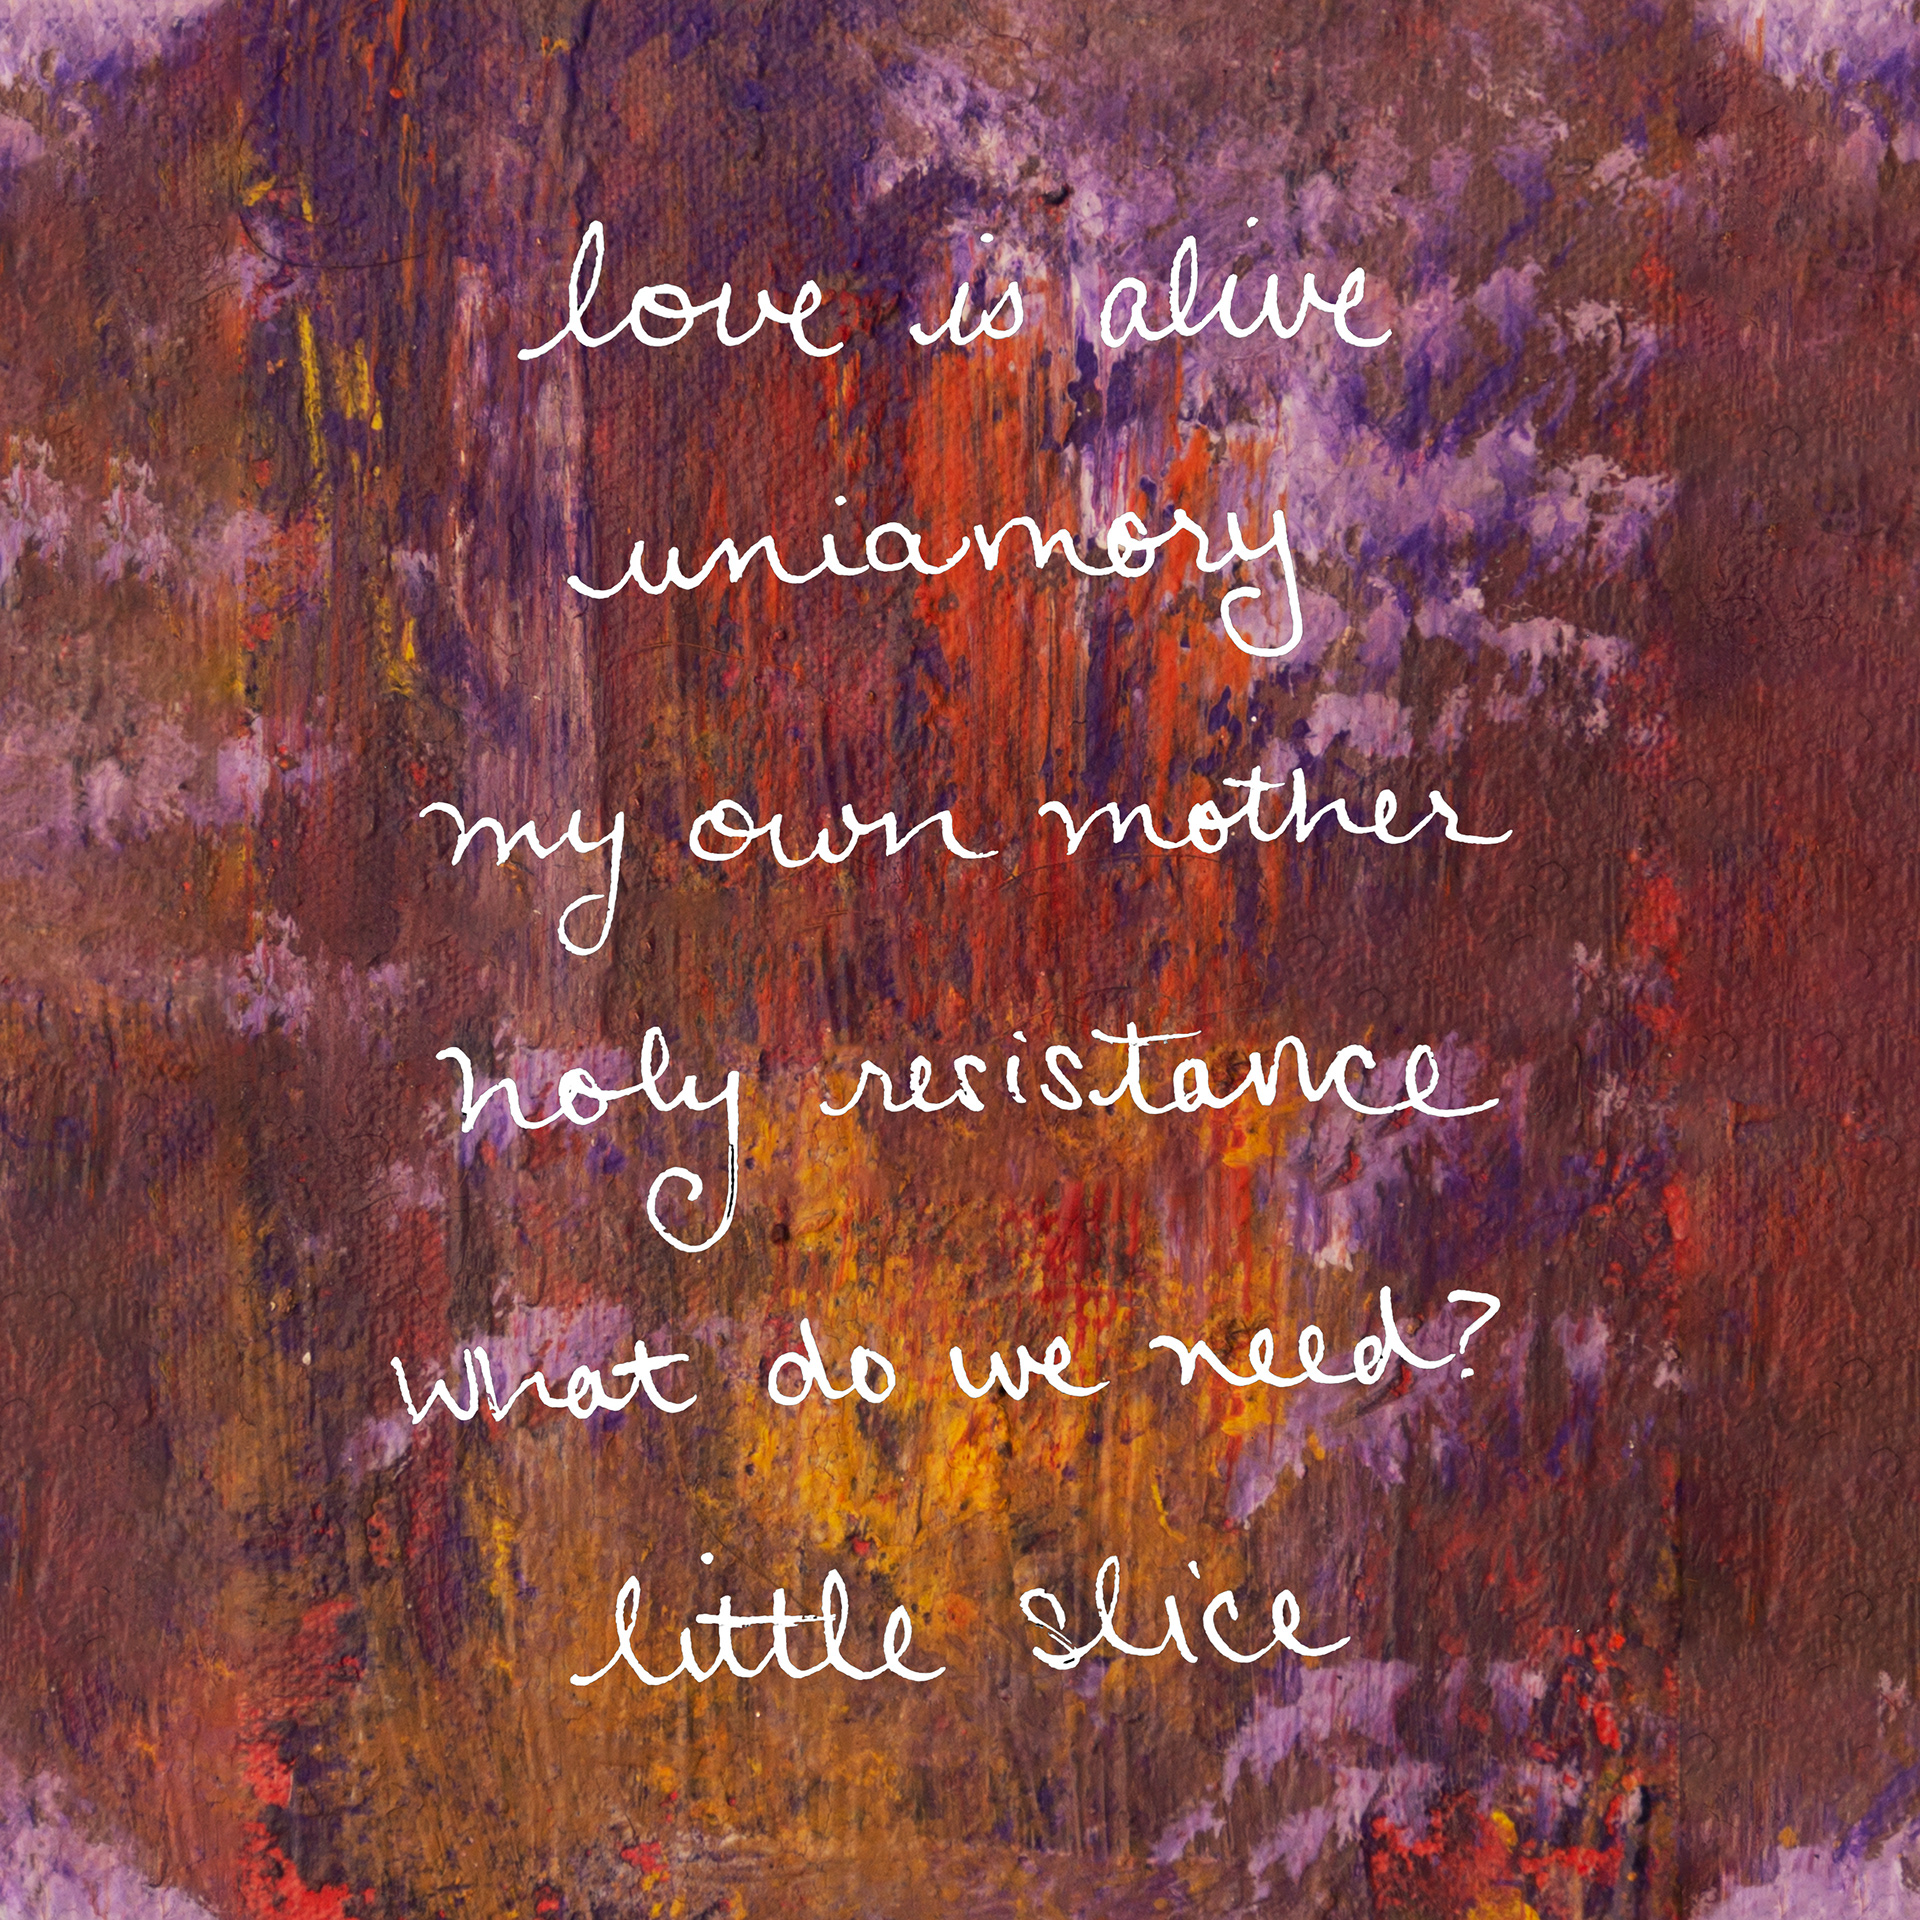 love is alive
uniamory
my own mother
holy resistance
what do we need?
little slice